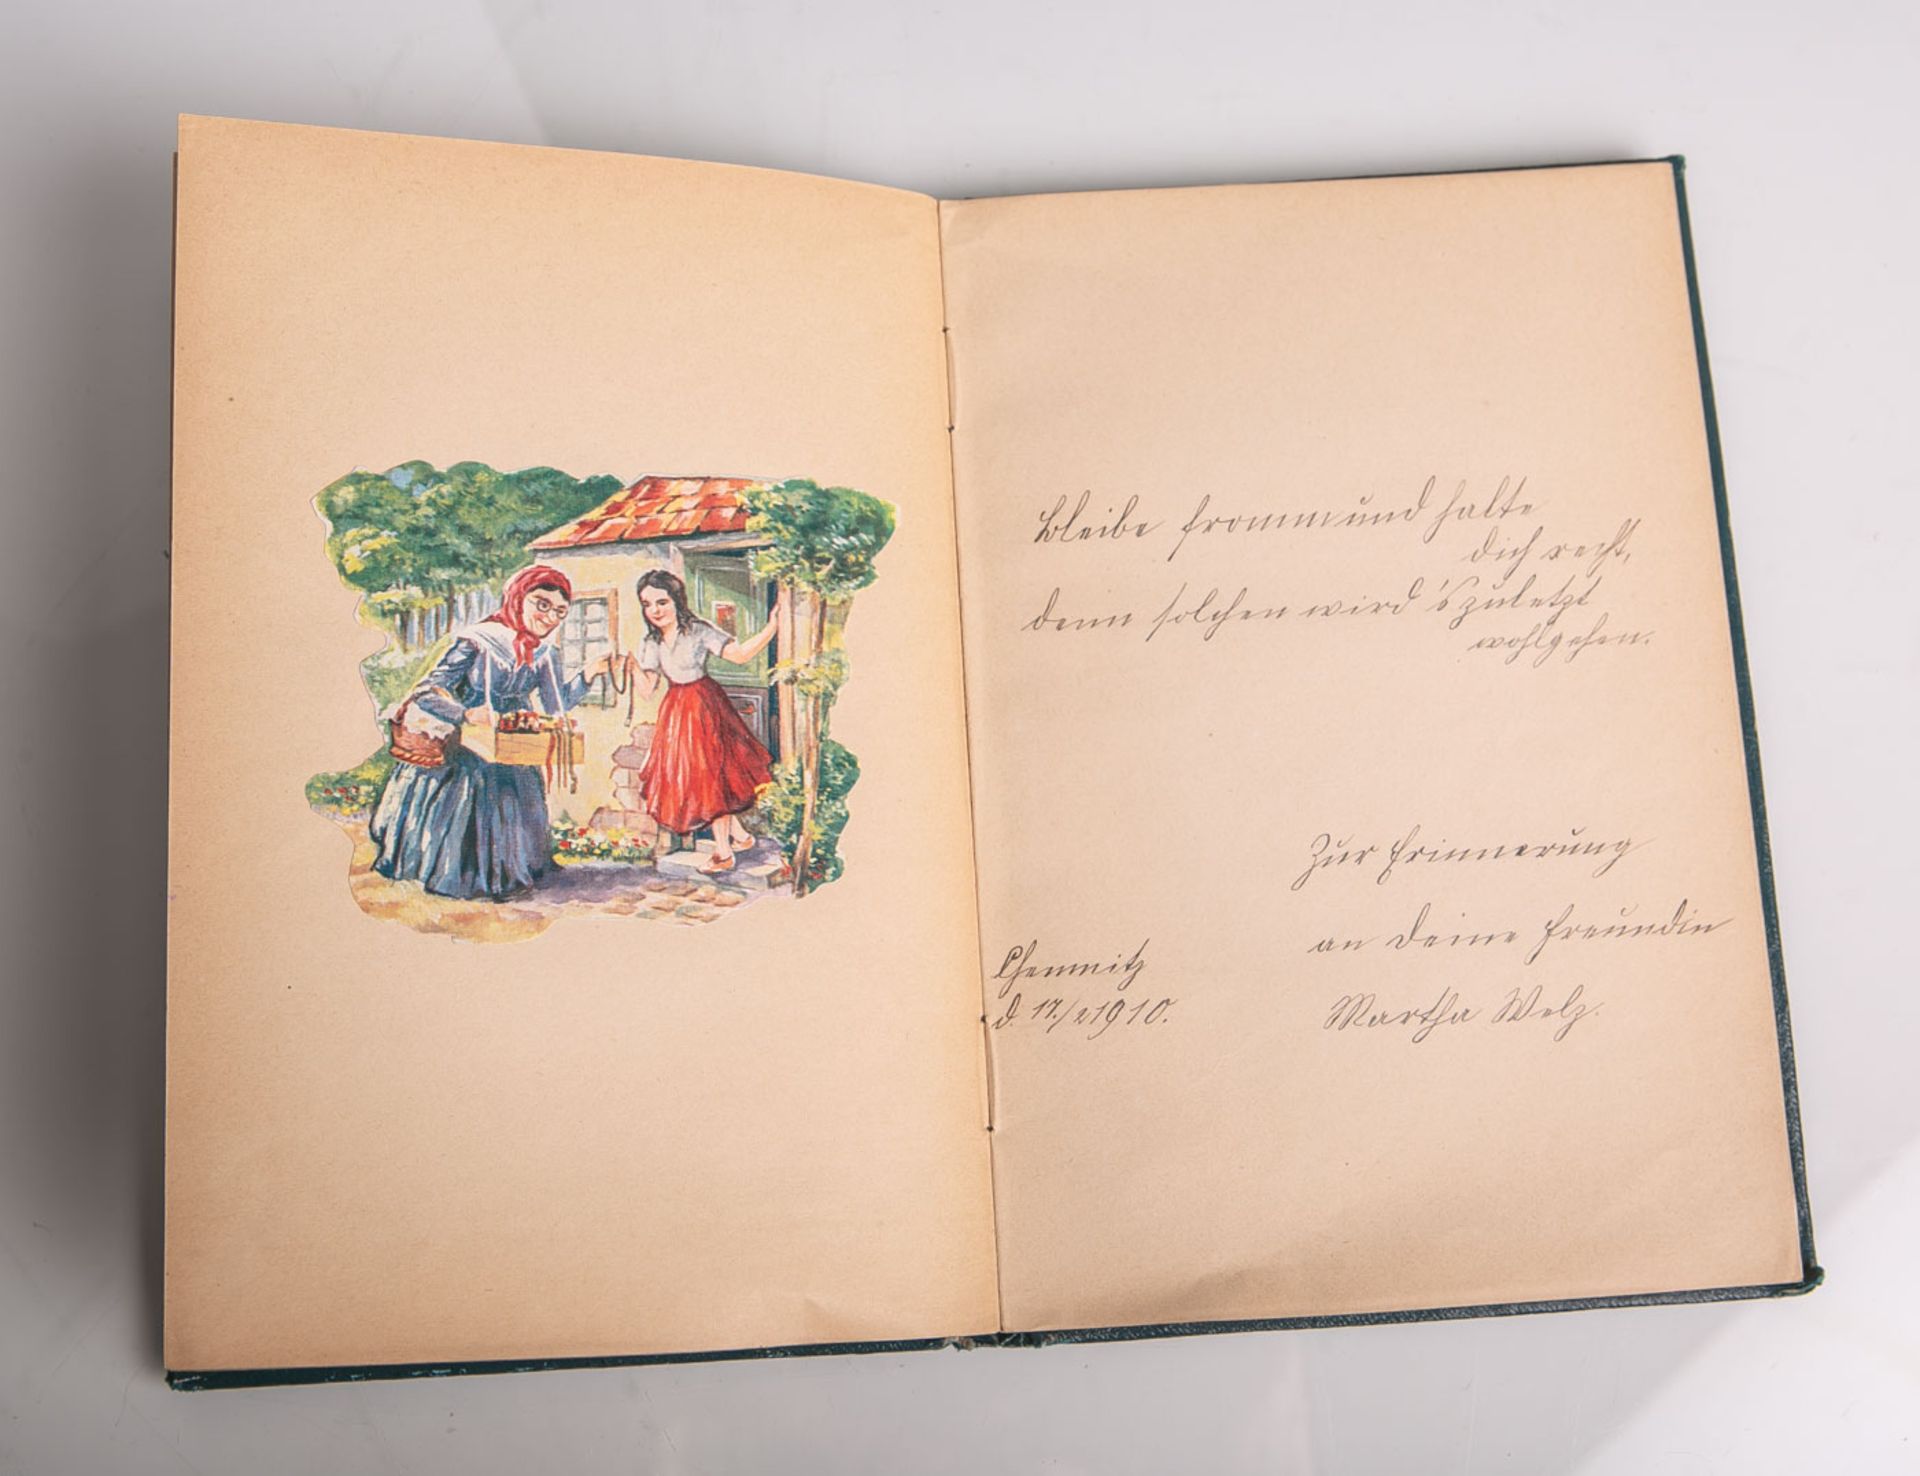 Bleibe fromm und halte
dich recht,
denn solchen wird's zuletzt
wohlgehen.
Zur Erinnerung
an Deine Freundin
Martha Welz.
Chemnitz
d. 17./2 1910.